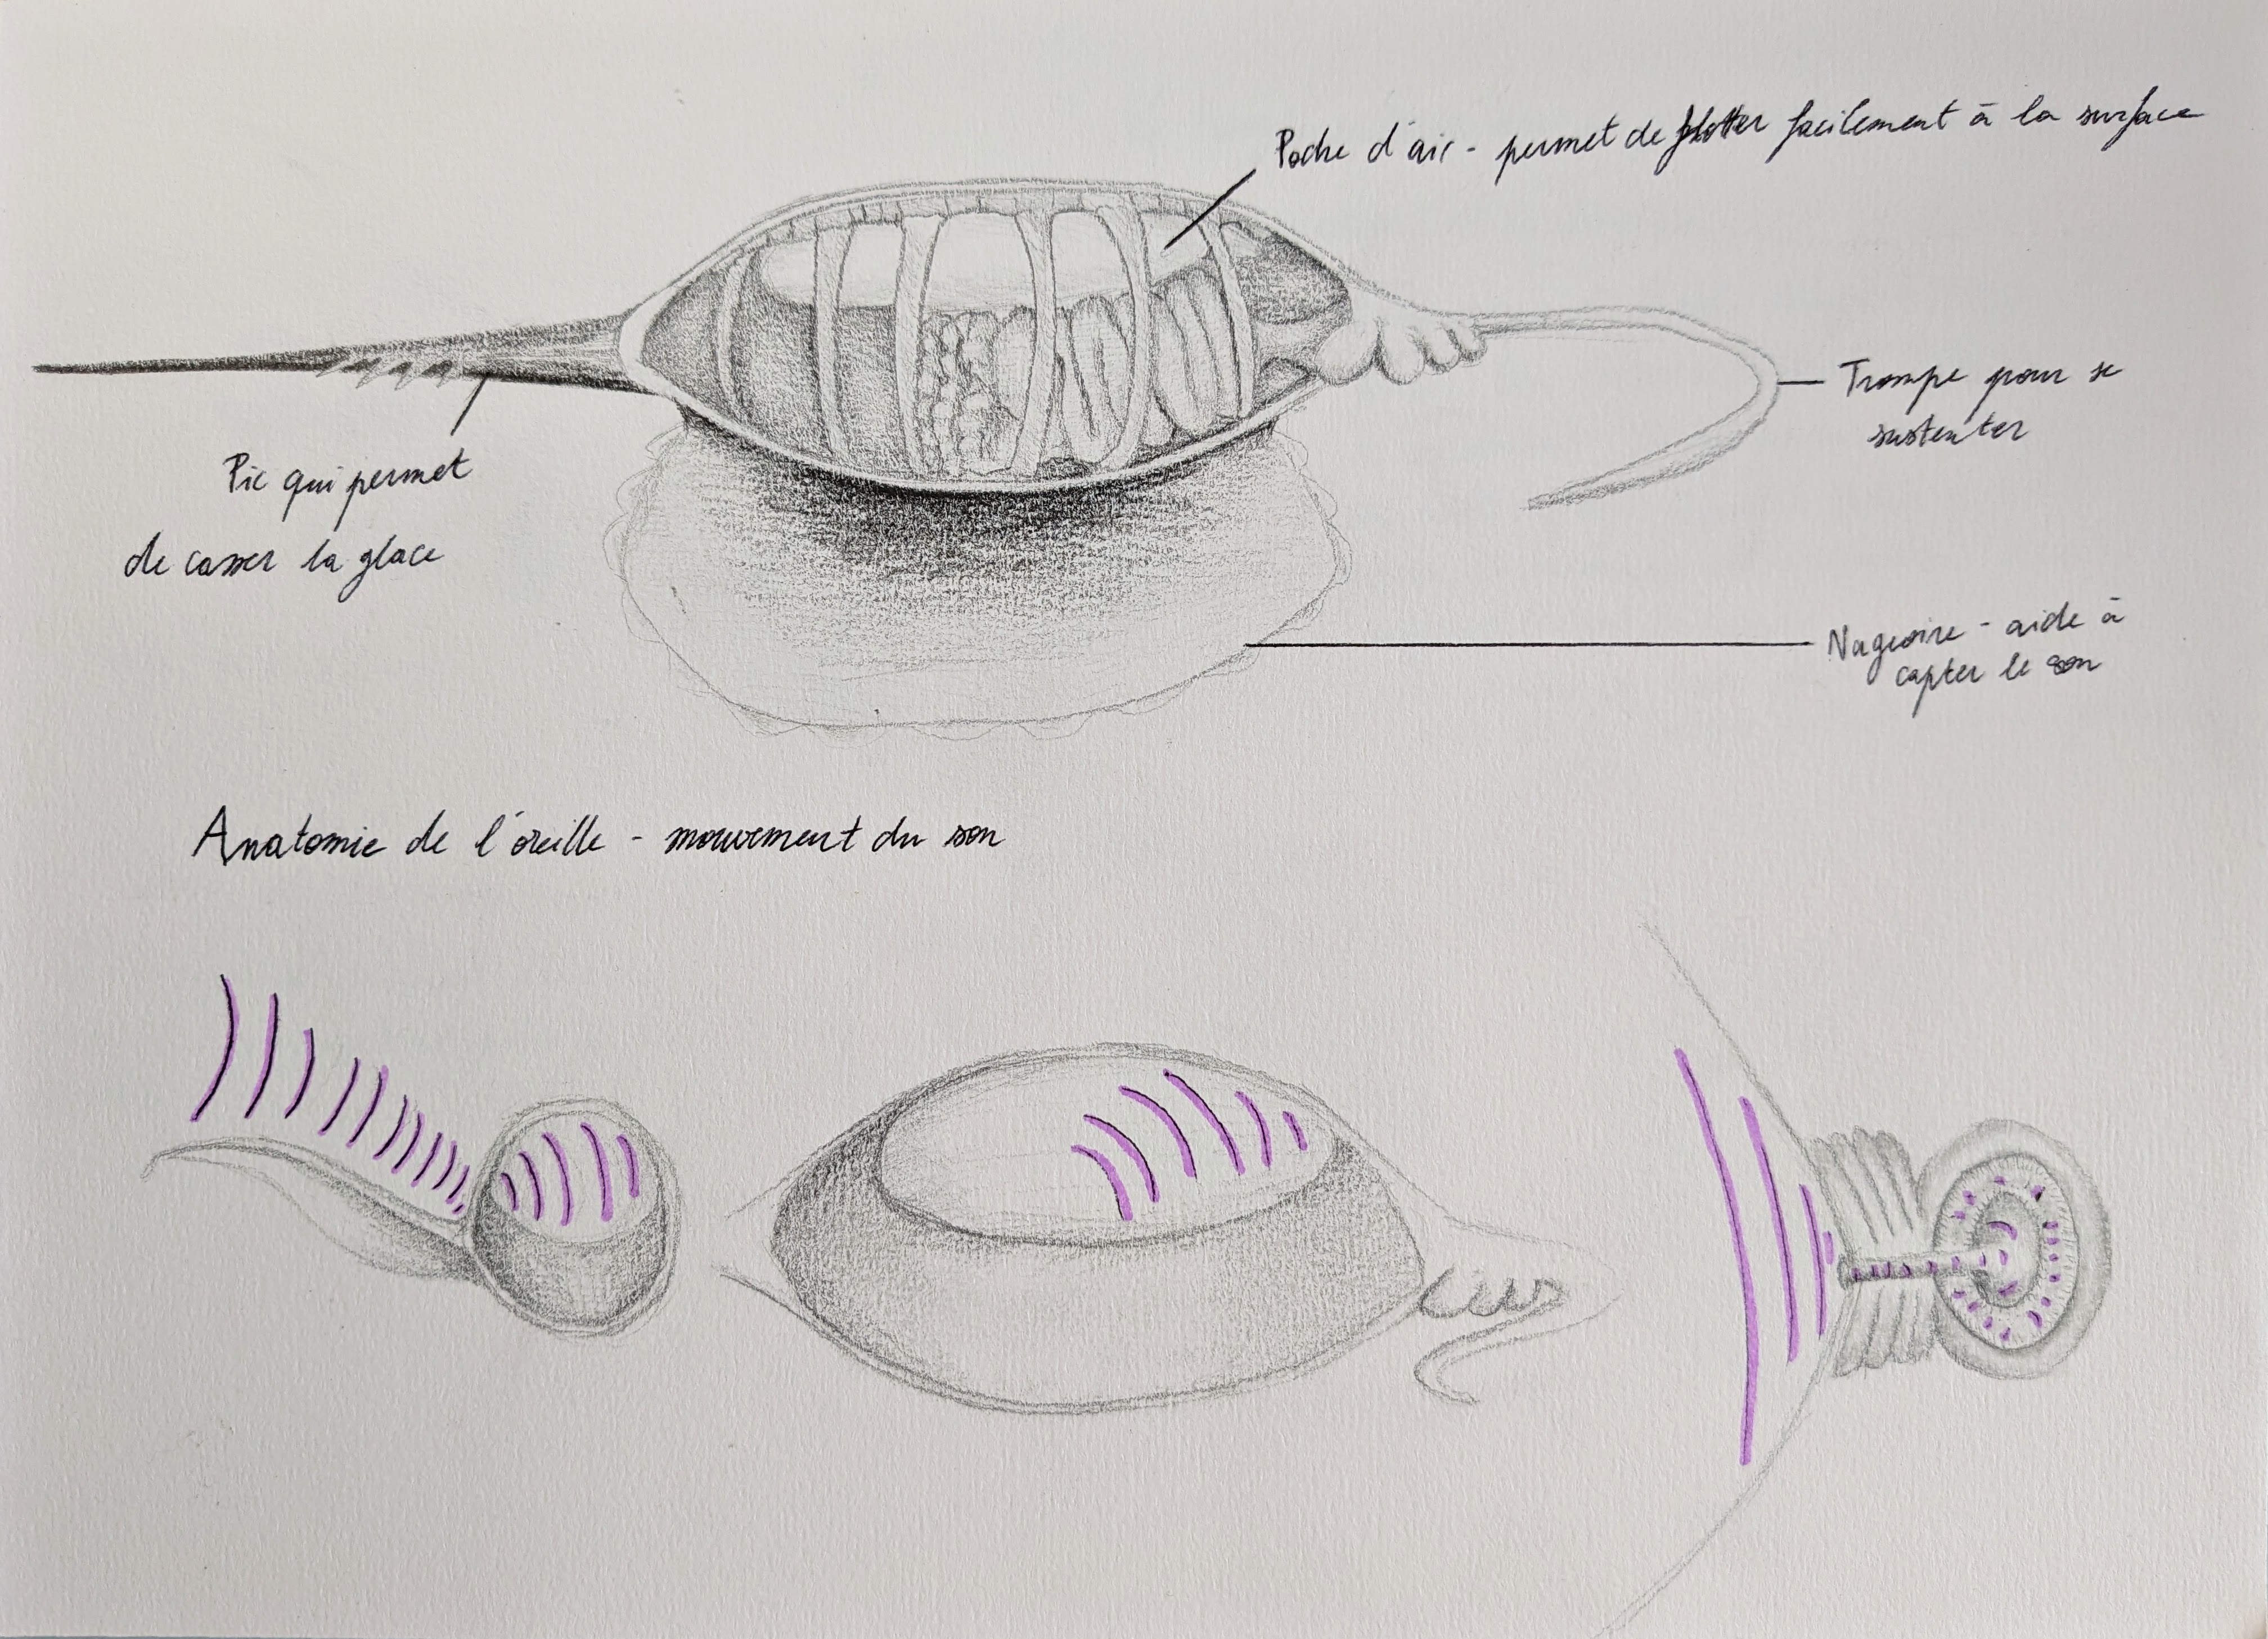 Poche d'air - permet de flotter facilement à la surface
Trompe pour se
sustenter
Pic qui permet
de casser la glace
Nageoire - aide à
capter le son
Anatomie de l'oreille - mouvement du son